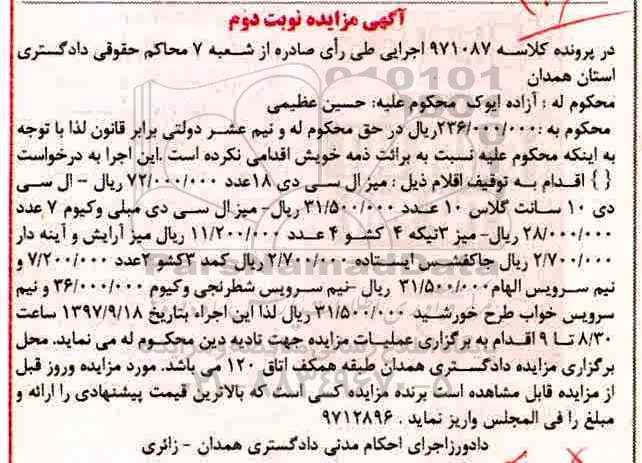 آگهی مزایده نوبت دوم
در پرونده کلاسه ۹۷۱۰۸۷ اجرایی طی رأی صادره از شعبه ۷ محاکم حقوقی دادگستری
استان همدان
محکوم له : آزاده ایوک  محکوم علیه: حسین عظیمی
محکوم به :۲۳۶/۰۰۰/۰۰۰ریال در حق محکوم له و نیم عشر دولتی برابر قانون لذا با توجه
به اینکه محکوم علیه نسبت به برائت ذمه خویش اقدامی نکرده است .این اجرا به درخواست
{ } اقدام به توقیف اقلام ذیل : میز ال سی دی ۱۸عدد ۷۲/۰۰۰/۰۰۰ ریال – ال سی
دی ۱۰ سانت گلاس ۱۰ عدد ۳۱/۵۰۰/۰۰۰ ریال- میز ال سی دی مبلی وکیوم ۷ عدد
۲۸/۰۰۰/۰۰۰ ریال- میز ۳تیکه ۴ کشو ۴ عدد ۱۱/۲۰۰/۰۰۰ ریال میز آرایش و آینه دار
۲/۷۰۰/۰۰۰ ریال جاکفشی ایستاده ۲/۷۰۰/۰۰۰ ریال کمد ۳کشو ۲عدد ۷/۲۰۰/۰۰۰ و
نیم سرویس الهام۳۱/۵۰۰/۰۰۰ ریال –نیم سرویس شطرنجی وکیوم ۳۶/۰۰۰/۰۰۰ و نیم
سرویس خواب طرح خورشید ۳۱/۵۰۰/۰۰۰ ریال لذا این اجراء بتاریخ ۱۳۹۷/۹/۱۸ ساعت
۸/۳۰ تا ۹ اقدام به برگزاری عملیات مزایده جهت تادیه دین محکوم له می نماید. محل
برگزاری مزایده دادگستری همدان طبقه همکف اتاق ۱۲۰ می باشد. مورد مزایده وروز قبل
از مزایده قابل مشاهده است برنده مزایده کسی است که بالاترین قیمت پیشنهادی را ارائه و
مبلغ را فی المجلس واریز نماید . ۹۷۱۲۸۹۶
دادورزاجرای احکام مدنی دادگستری همدان - زائری
ParsNamadData
۰۲۱-۸۸۳۴۹۶۷۰-۵